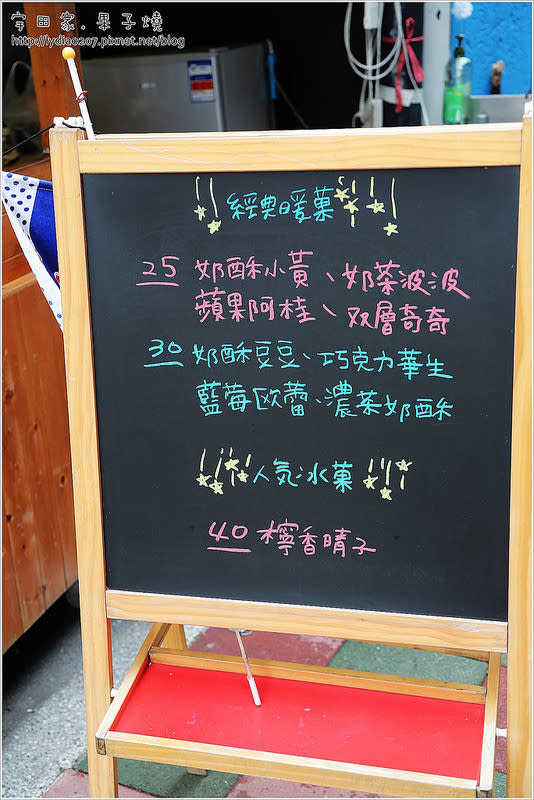 宇田家.果子燒
http://lydia0207.pixnet.net/blog
經典暖菓
25 奶酥小黃、奶茶波波
蘋果阿桂、双層奇奇
30 奶酥豆豆、巧克力華生
藍莓欧蕾、濃茶奶酥
人気冰菓
40 檸香晴子